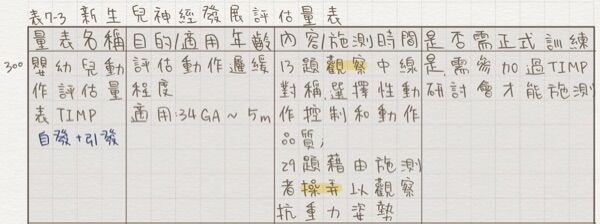 表7-3 新生兒神經發展評估量表
量表名稱 目的/適用年齡 內容/施測時間 是否需正式訓練
300 嬰幼兒動 評估動作遲緩 13題觀察中線 是,需參加過TIMP
作評估量 程度 對稱,選擇性動 研討會才能施測
表TIMP 適用:34GA~5m 作控制和動作
自發+引發 品質;
29題藉由施測
者操弄以觀察
抗重力姿勢